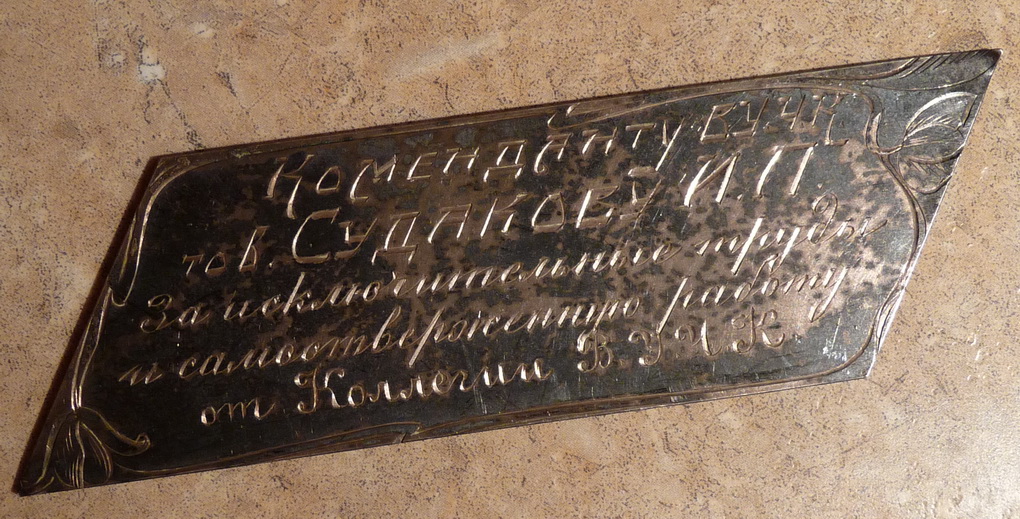 Коменданту ВУЧК
тов. Судакову И.П.
За исключительные труды
и самоотверженную работу
от Коллегии В.У.Ч.К.